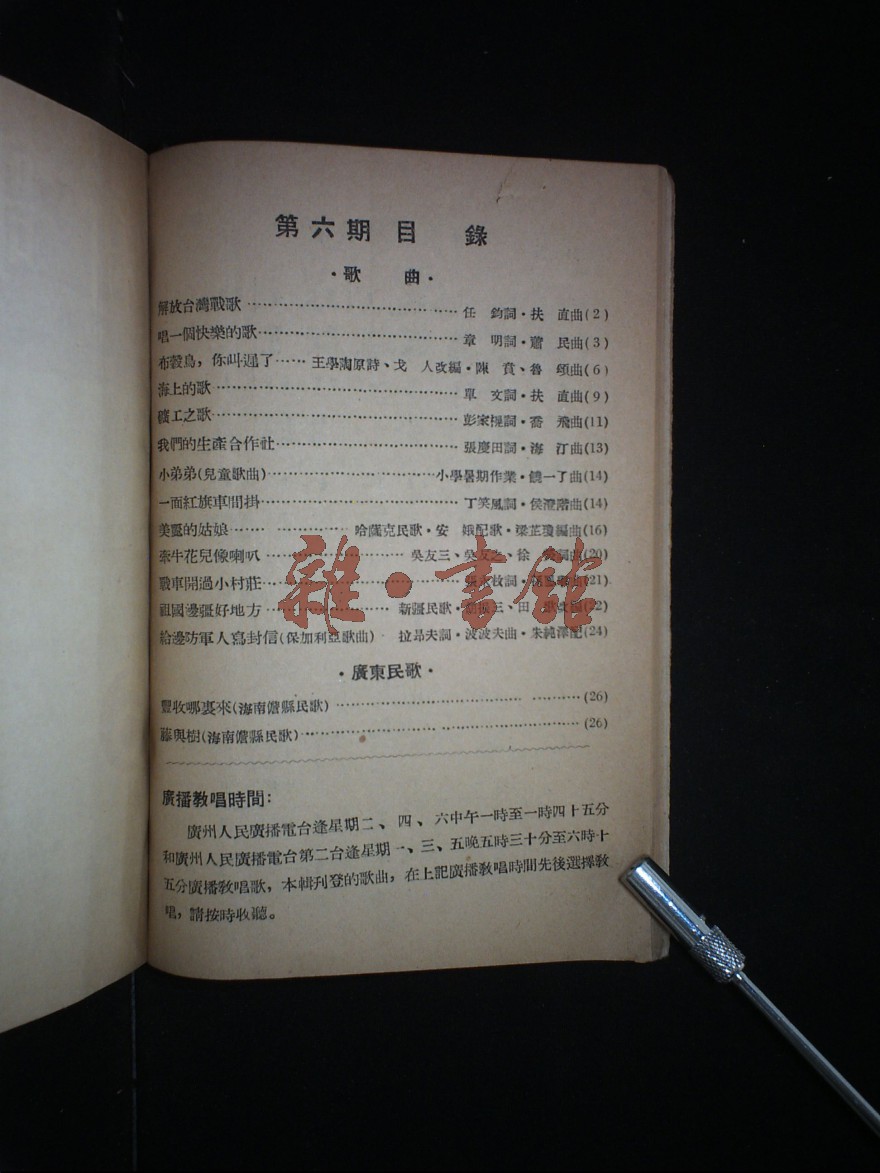 第六期目 錄
·歌 曲·
解放台灣戰歌 任 鈞詞·扶 直曲(2)
唱一個快樂的歌 章 明詞·蕭 民曲(3)
布穀鳥，你叫遲了 王學陶原詩、戈 人改編·陳 賁、魯 頌曲(6)
海上的歌 單 文詞·扶 直曲(9)
礦工之歌 彭家 詞·喬 飛曲(11)
我們的生產合作社 張慶田詞·海 汀曲(13)
小弟弟(兒童歌曲) 小學暑期作業·饒一了曲(14)
一面紅旗車間掛 丁笑風詞·侯澄階曲(14)
美麗的姑娘 哈薩克民歌·安 娥配歌·梁芷瓊編曲(16)
牽牛花兒像喇叭 吳友三、 徐 (20)
戰車開過小村莊 詞· (21)
祖國邊疆好地方 新疆民歌· 三、田 (22)
給邊防軍人寫封信(保加利亞歌曲) 拉昂夫詞·波波夫曲·朱純澤配(24)
·廣東民歌·
豐收哪裏來(海南儋縣民歌) (26)
藤與樹(海南儋縣民歌) (26)
廣播教唱時間：
廣州人民廣播電台逢星期二、四、六中午一時至一時四十五分
和廣州人民廣播電台第二台逢星期一、三、五晚五時三十分至六時十
五分廣播教唱歌，本輯刊登的歌曲，在上記廣播教唱時間先後選擇教
唱，請按時收聽。
雜·書館